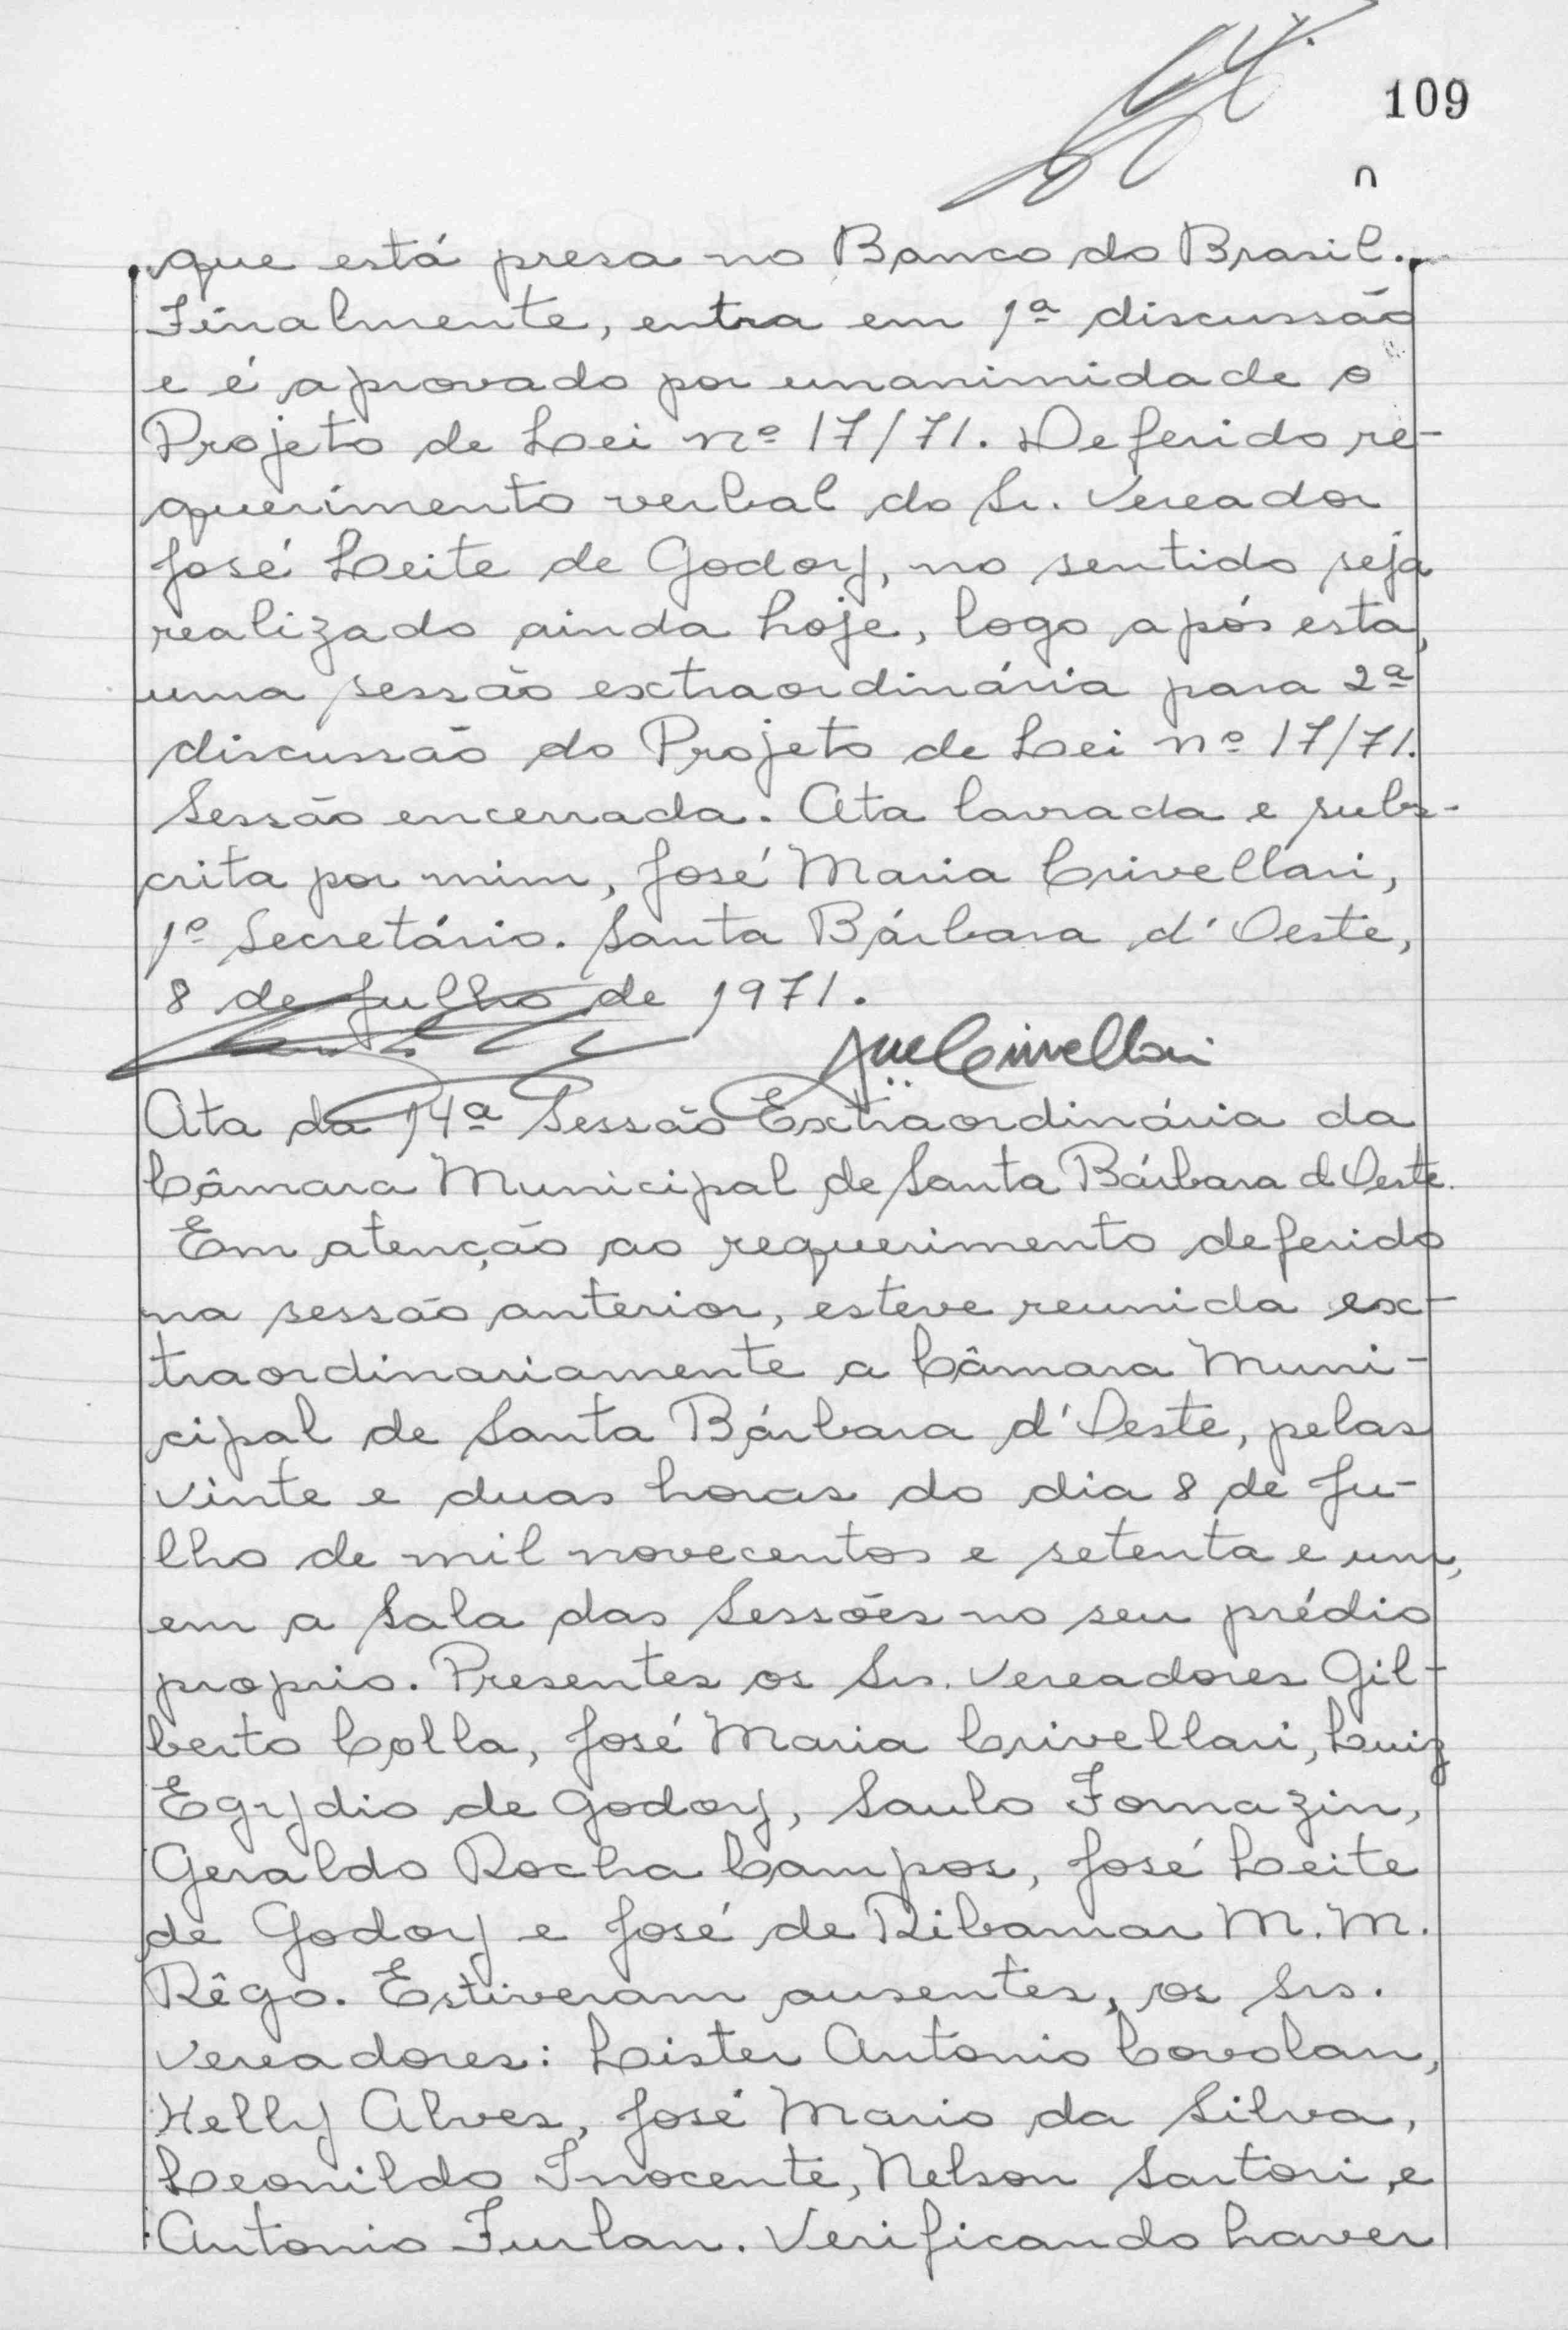 109
que está presa no Banco do Brasil.
Finalmente, entra em 1ª discussão
e é aprovado por unanimidade o
Projeto de Lei nº 17/71. Deferido re-
querimento verbal do Sr. Vereador
José Leite de Godoy, no sentido seja
realizado ainda hoje, logo após esta,
uma sessão extraordinária para 2ª
discussão do Projeto de Lei nº 17/71.
Sessão encerrada. Ata lavrada e subs-
crita por mim, José Maria Crivellari,
1º Secretário. Santa Bárbara d'Oeste,
8 de Julho de 1971.
Crivellari
Ata da 14ª Sessão Extraordinária da
Câmara Municipal de Santa Bárbara d Oeste.
Em atenção ao requerimento deferido
na sessão anterior, esteve reunida ex-
traordinariamente a Câmara Muni-
cipal de Santa Bárbara d'Oeste, pelas
vinte e duas horas do dia 8 de Ju-
lho de mil novecentos e setenta e um,
em a Sala das Sessões no seu prédio
proprio. Presentes os Srs. Vereadores Gil-
berto Colla, José Maria Crivellari, Luiz
Egydio de Godoy, Saulo Fornazin,
Geraldo Rocha Campos, José Leite
de Godoy e José de Ribamar M. M.
Rêgo. Estiveram ausentes, os Srs.
Vereadores: Lister Antonio Covolan,
Helly Alves, José Mario da Silva,
Leonildo Inocente, Nelson Sartori, e
Antonio Furlan. Verificando haver